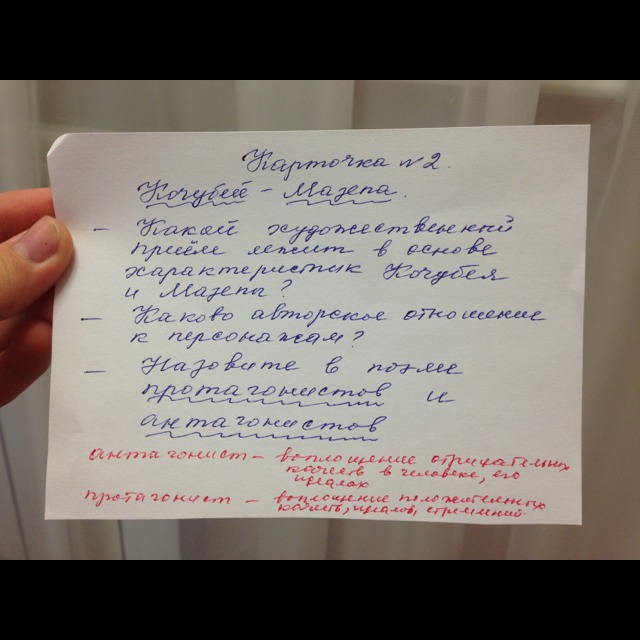 Карточка № 2.
Кочубей - Мазепа.
- Какой художественный
приём лежит в основе
характеристик Кочубея
и Мазепы?
- Каково авторское отношение
к персонажам?
- Назовите в поэме
протагонистов и
антагонистов
антагонист - воплощение отрицательных
качеств в человеке, его
идеалах
протагонист - воплощение положительных
качеств, идеалов, стремлений.